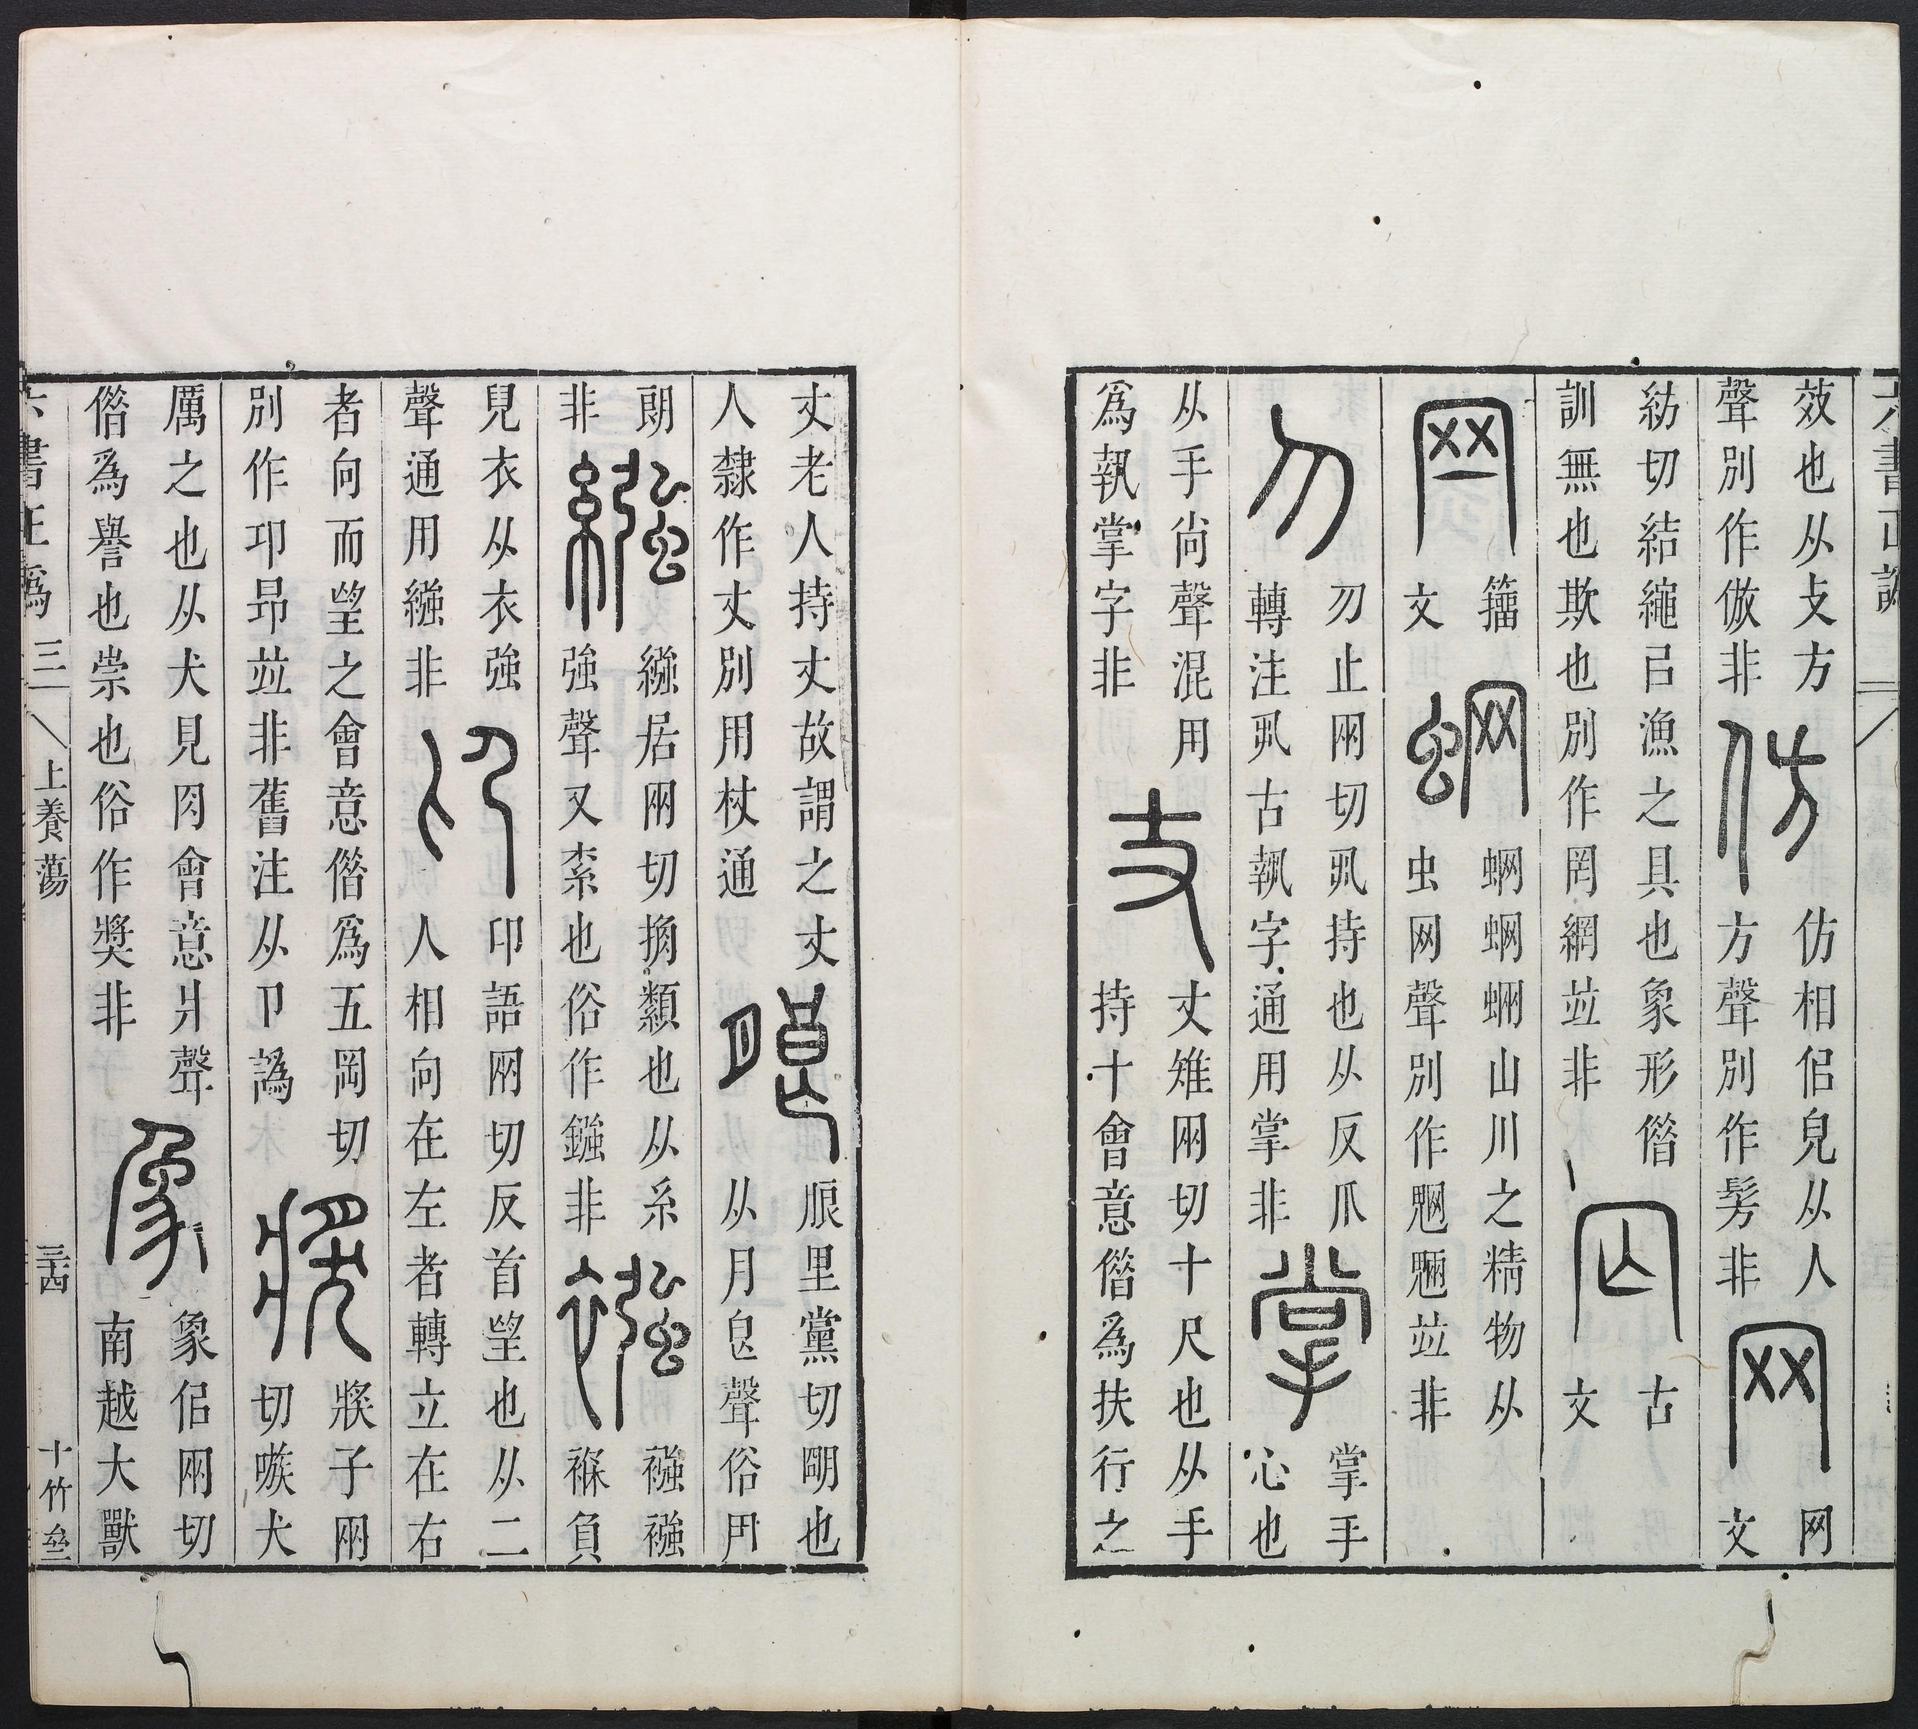 效也从攴方
聲別作倣非
仿
仿相侣皃从人
方聲別作髣非
网
网文
紡切結繩㠯漁之具也象形偺
訓無也欺也別作罔網竝非
古
文
籀
文
蝄
蝄蝄蜽山川之精物从
虫网聲別作魍魎竝非
刅止网切丮持也从反爪
轉注丮古執字通用掌非
掌
掌手
心也
从手尙聲混用
爲執掌字非
丈
丈雉网切十尺也从手
持十會意偺爲扶行之
丈老人持丈故謂之丈
人隸作丈別用杖通
朖
朖里黨切朙也
从月皀聲俗
朗
非
繈
繈居网切摘纇也从糸
強聲又紊也俗作鏹非
襁
襁襁
褓負
兒衣从衣強
聲通用繈非
印語网切反首望也从二
人相向在左者轉立在右
者向而望之會意偺爲五岡切
別作卬昂竝非舊注从卩譌
㢡子网
切嗾犬
厲之也从犬見肉會意爿聲
偺爲譽也崇也俗作獎非
象
象侣网切
南越大獸
六書正譌 三
上養蕩
三十四
十竹